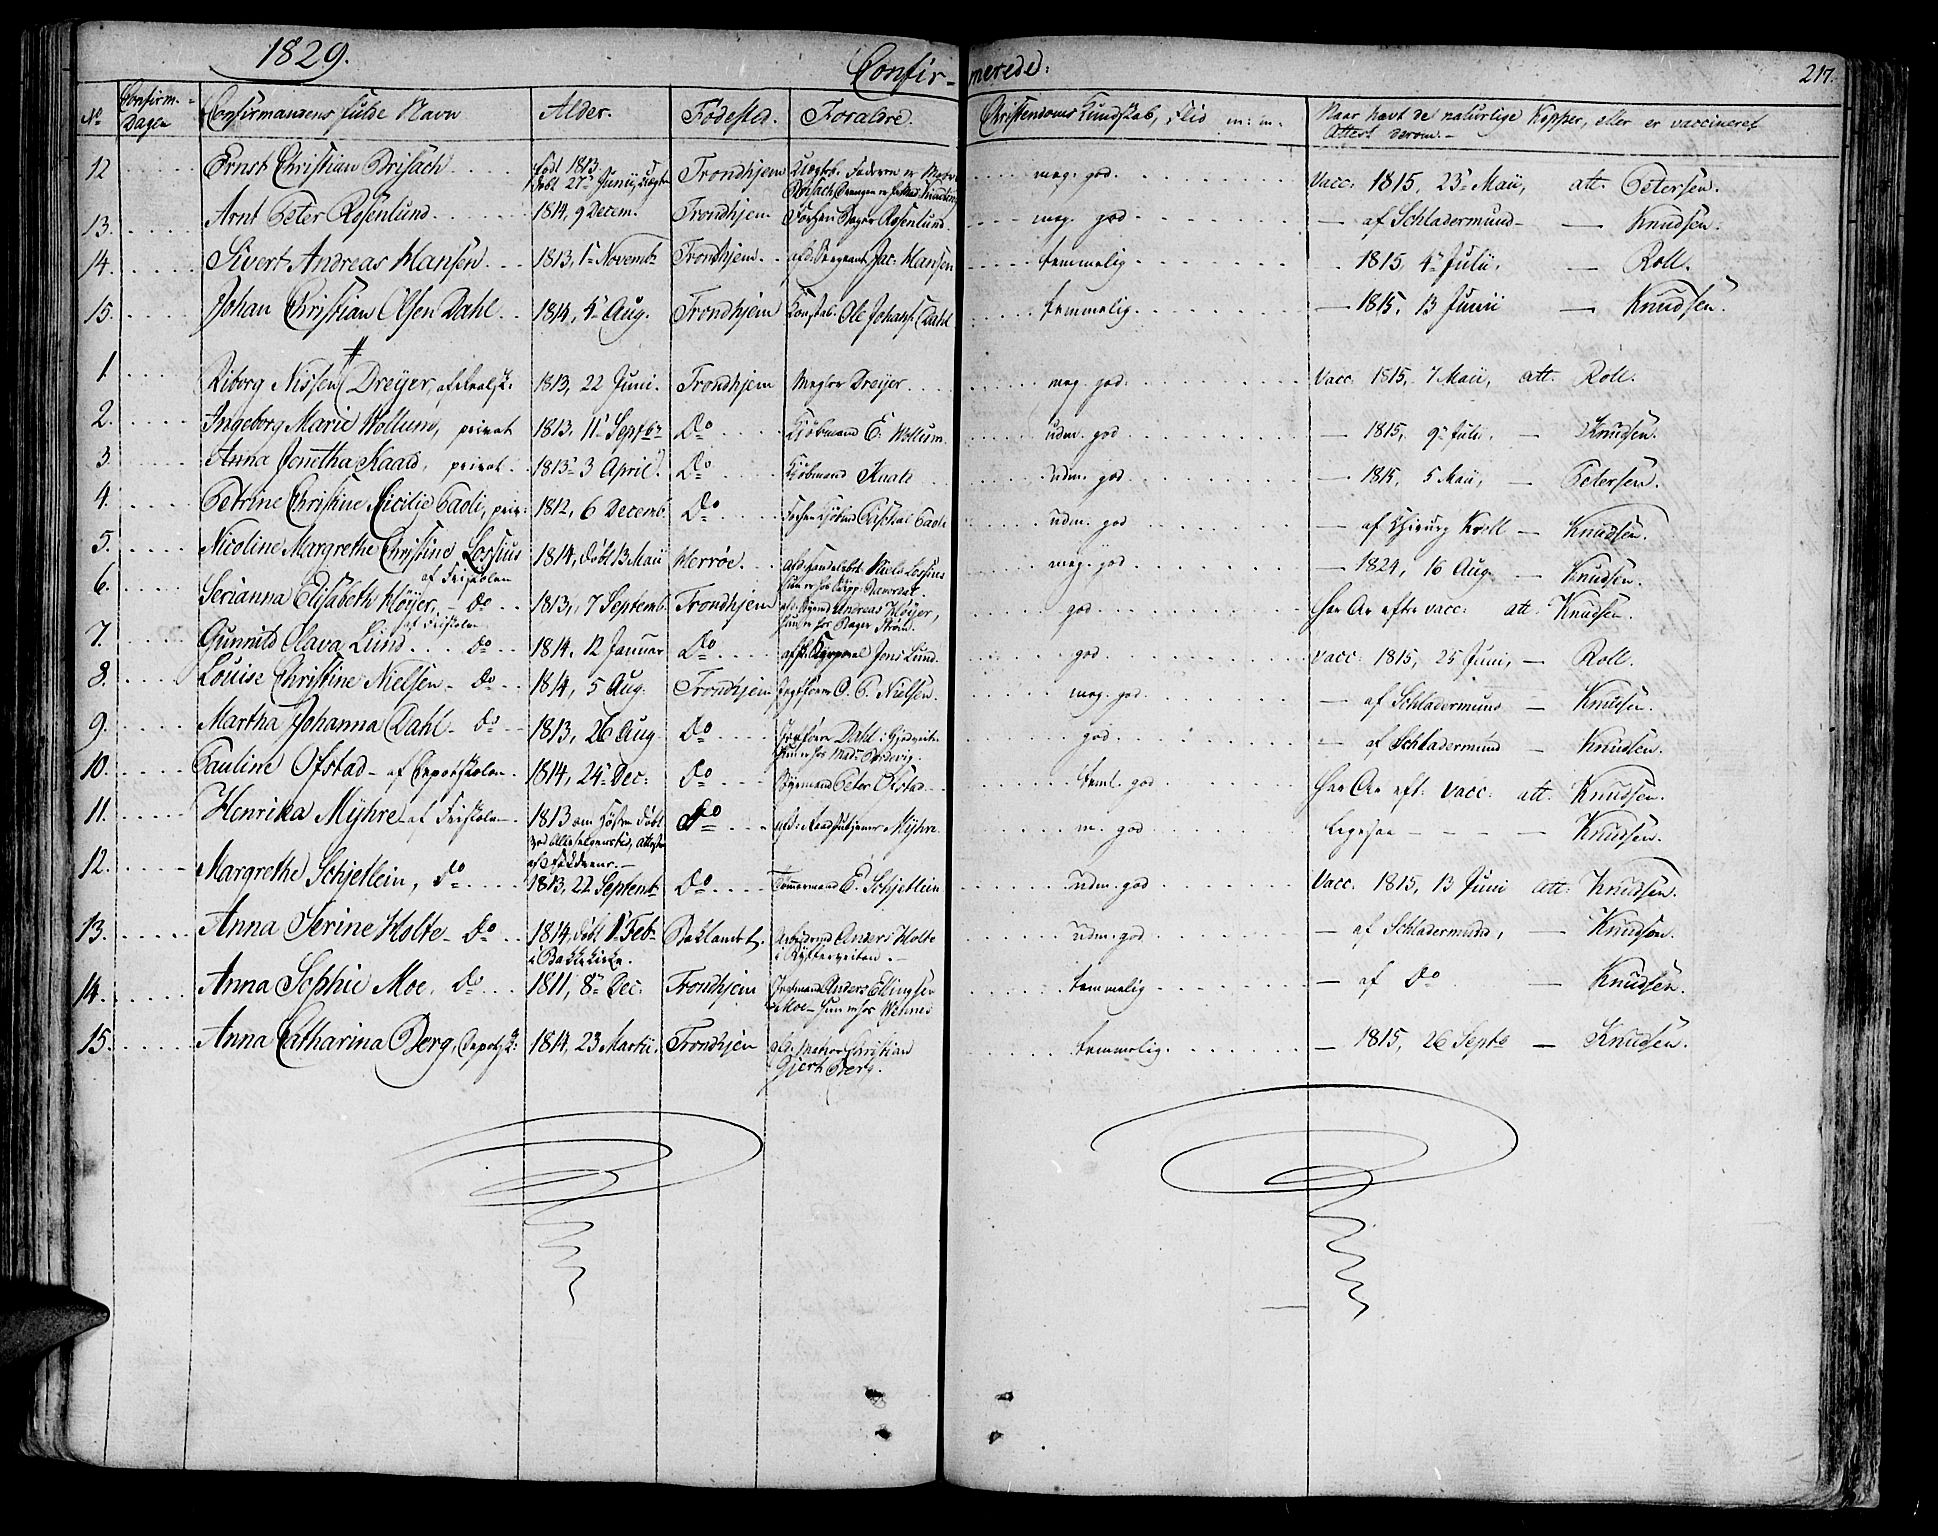 1829.
Confirmerede:
217.
No Confirm.- Dagen Confirmandens fulde Navn Alder. Fødested. Forældre. Christendoms Kundskab, Flid m: m. Naar havt de naturlige Kopper, eller er vaccineret Attest derom.-
12 Ernst Christian Drisach født 1813 døbt 27 Junii, Trondhjem Faderen er meg. god. Vacc: 1815, 23 Maii, att: Petersen.
13. Arnt Peter Rosenlund 1814, 9 Decem. Trondhjem Bager Rosenlund. meg. god — af Schladermund — Knudsen.
14. Sivert Andreas Hansen 1813, 1 Novemb: Trondhjem afd: Sergeant Jac: Hansen temmelig 1815, 4 Julii, — Roll.
15. Johan Christian Olsen Dahl 1814, 4 Aug. Trondhjem Ole Johans: Dahl temmelig. — 1815, 13 Junii — Knudsen.
1 Riborg Nissen Dreyer, 1813, 22 Juni. Trondhjem Dreyer meg. god. Vacc: 1815, 7 Maii, att: Roll.
2. Ingeborg Marie Wollum, privat 1813, 11 Septbr Do Kjøbmand E. Wollum. udm. god — 1815, 9 Julii, — Knudsen.
3. Anna Jonetha Kaad, privat. 1813 3 April Do Kjøbmand udm. god — 1815, 5 Maii, — Petersen.
4. Petrine Christine Cicilie Paoli, priv: 1812, 6 Decemb. Do Paoli udm. god — af Chirurg Kroll — Knudsen.
5. Nicoline Margrethe Christine Lossius af Friskolen 1814, døbt 13 Maii Værrøe. Niels Lossius meg. god — 1824, 16 Aug. — Knudsen.
6. Serianna Elisabeth Kløyer. Do af Friskolen 1813, 7 Septemb. Trondhjem Andreas Kløyer, hun er hos Bager Strøm. god har Ar efter vacc: att: Knudsen.
7. Gunnild Olava Lund Do 1814, 12 Januar Do Jens Lund. god Vacc: 1815, 25 Juni, — Roll.
8. Louise Christine Nielsen Do 1814, 5 Aug. Trondhjem O. P. Nielsen. meg. god — af Schladermund — Knudsen.
9. Martha Johanna Dahl Do 1813, 26 Aug. Do Dahl i hun er hos Mad: god — af Schladermund — Knudsen.
10. Pauline Ofstad af Depotskolen. 1814, 24 Dec: Do Peter Ofstad teml. god har Ar eft: vacc: att: Knudsen.
11. Henrika Myhre af Friskolen 1813 om Høsten døbt ved Allehelgenstid, Do Myhre. m. god Ligesaa - - - Knudsen.
12. Margrethe Schjetlein, Do 1813, 22 Septemb: Do Tømmermand E. Schjetlein udm. god Vacc: 1815, 13 Juni att: Knudsen.
13. Anna Serine Holte Do 1814, døbt 1 Feb. i Bakke Kirke. Baklandet. Anders Holte i udm. god — af Schladermund, — Knudsen.
14. Anna Sophie Moe. Do 1811, 8 Dec: Trondhjem Anders Ellingsen Moe hun er hos temmelig — af Do — Knudsen.
15. Anna Catharina Berg, Depotsk: 1814, 23 Martii. Trondhjem Christian Gjert Berg. temmelig. — 1815, 26 Septb — Knudsen.